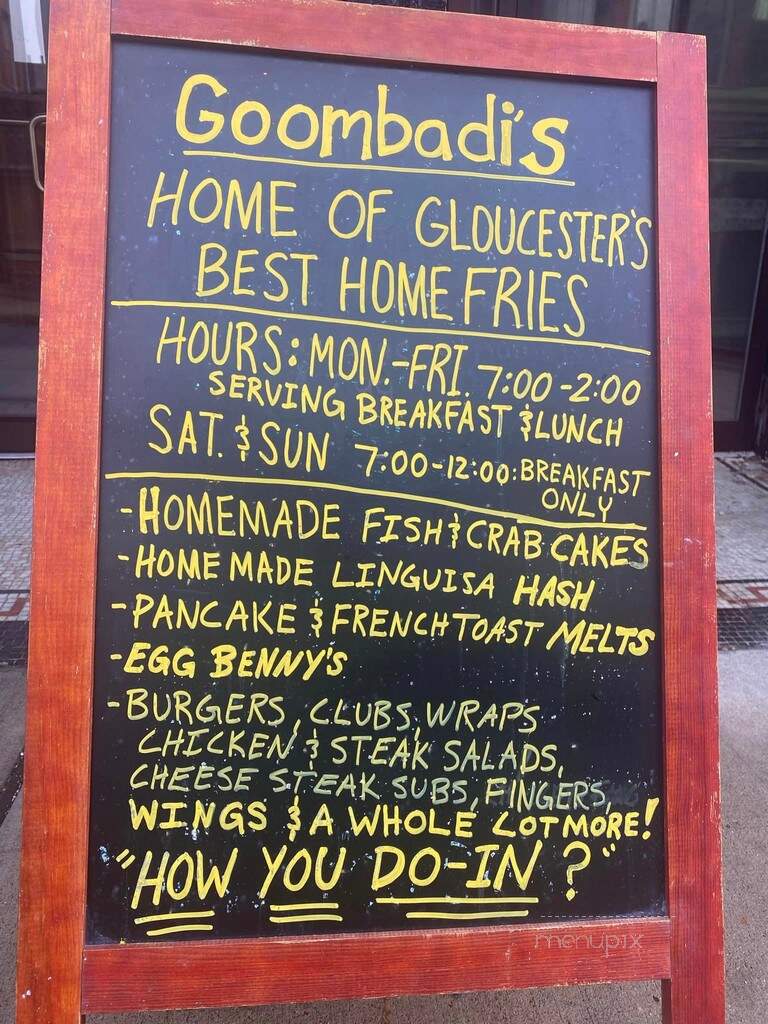 Goombadi's
HOME OF GLOUCESTER'S
BEST HOME FRIES
HOURS: MON.-FRI. 7:00-2:00
SERVING BREAKFAST & LUNCH
SAT. & SUN 7:00-12:00: BREAKFAST
ONLY
-HOMEMADE FISH & CRAB CAKES
-HOMEMADE LINGUISA HASH
-PANCAKE & FRENCH TOAST MELTS
-EGG BENNY'S
-BURGERS, CLUBS, WRAPS
CHICKEN & STEAK SALADS,
CHEESE STEAK SUBS, FINGERS,
WINGS & A WHOLE LOT MORE!
"HOW YOU DO-IN?"
menupix